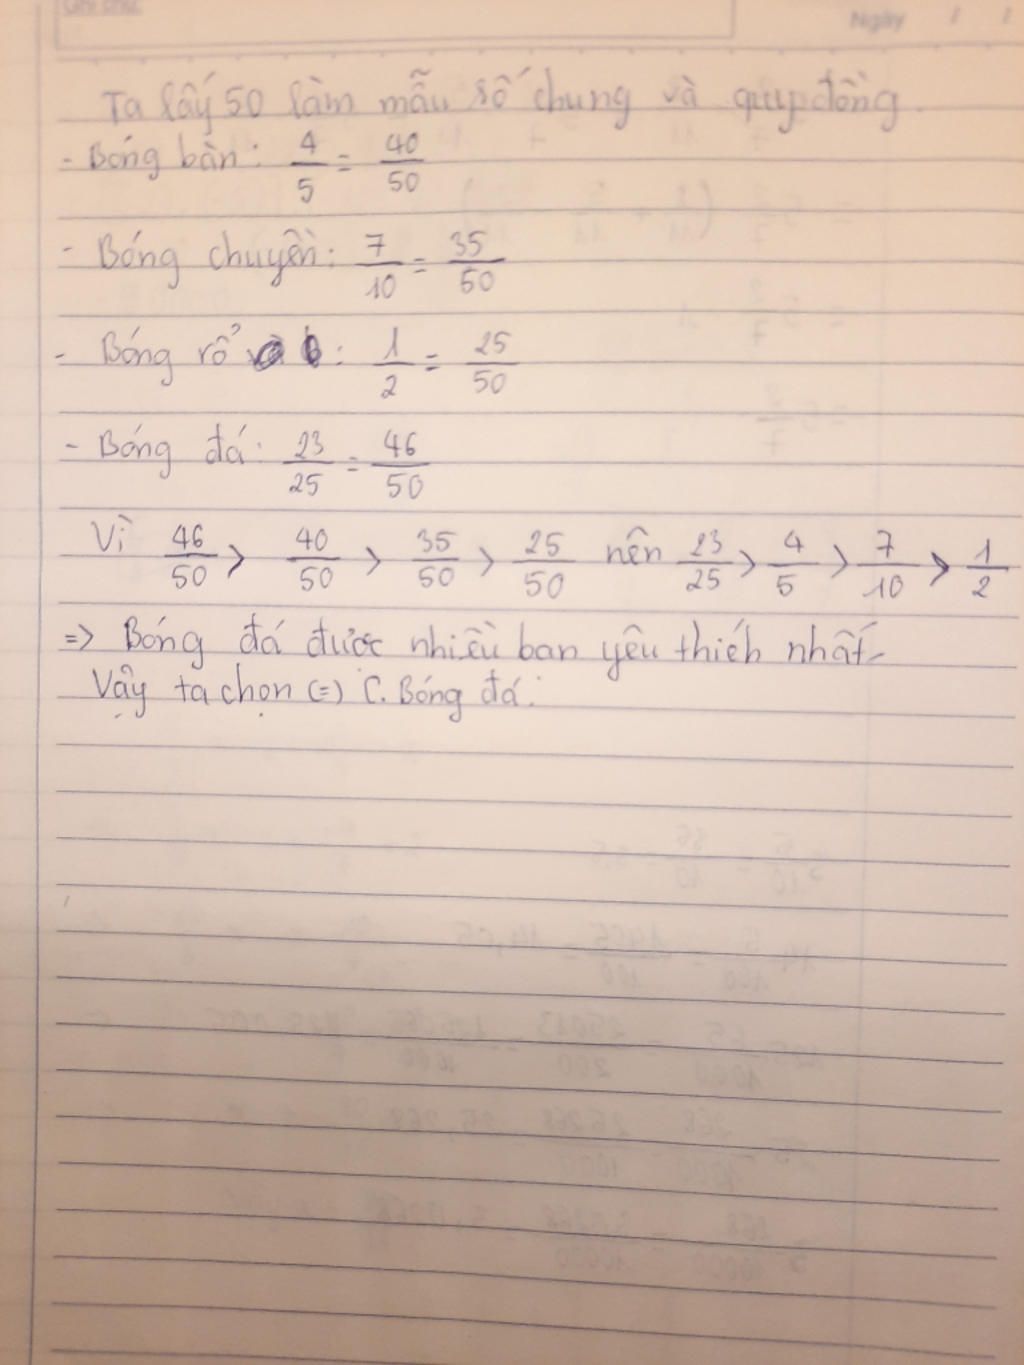 Ghi chú:
Ngày / /
Ta lấy 50 làm mẫu số chung và quy đồng.
- Bóng bàn: 4/5 = 40/50
- Bóng chuyền: 7/10 = 35/50
- Bóng rổ : 1/2 = 25/50
- Bóng đá: 23/25 = 46/50
Vì 46/50 > 40/50 > 35/50 > 25/50 nên 23/25 > 4/5 > 7/10 > 1/2
=> Bóng đá được nhiều bạn yêu thích nhất.
Vậy ta chọn (=) C. Bóng đá.